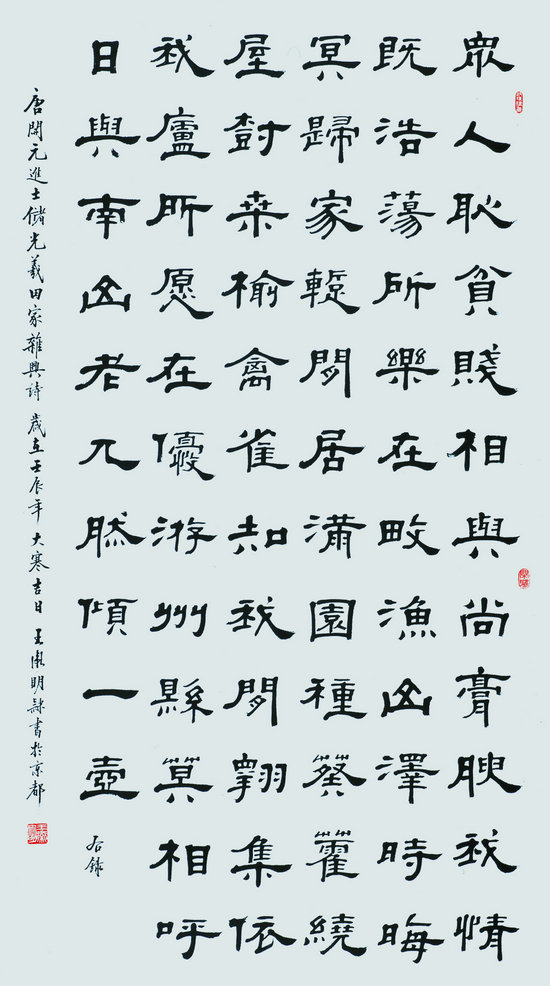 眾人恥貧賤相與尚膏腴我情
既浩蕩所樂在畋漁山澤時晦
冥歸家暫閒居滿園種葵藿繞
屋樹桑榆禽雀知我閒翔集依
我廬所愿在優游州縣莫相呼
日與南山老兀然傾一壺
右錄
唐開元進士儲光羲田家雜興詩 歲在壬辰年大寒吉日 王明隸書於京都